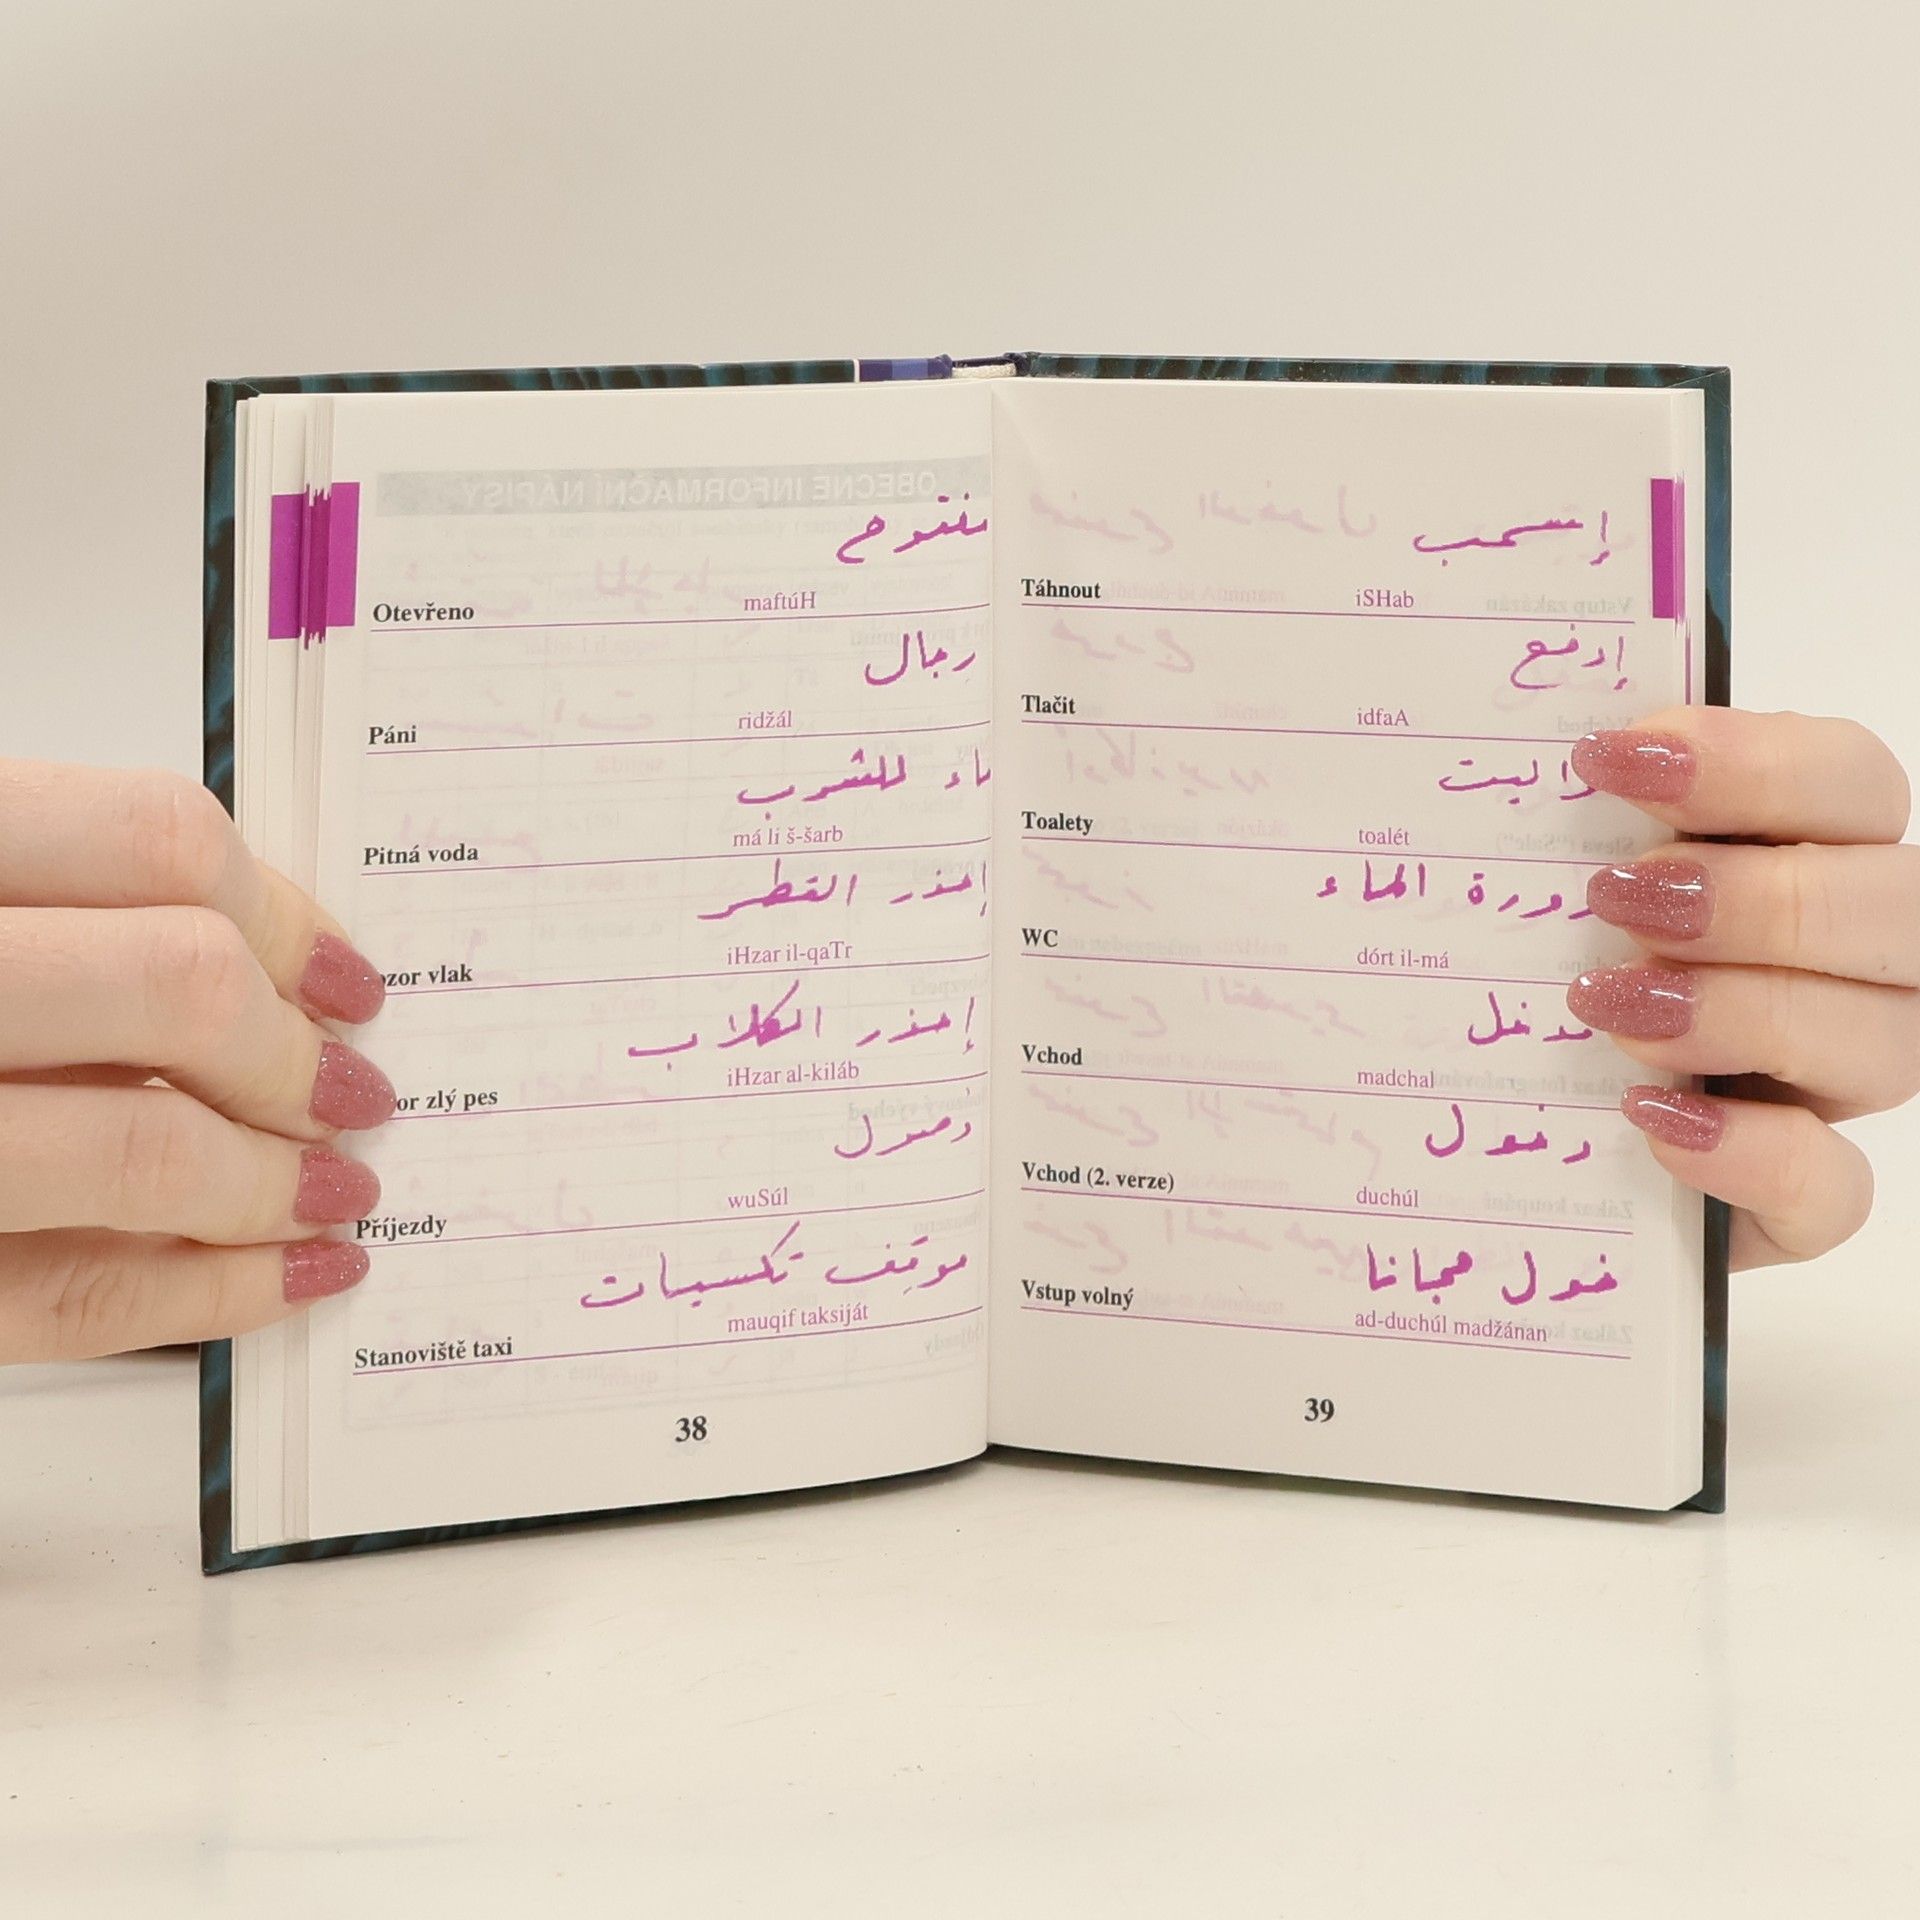 مفتوح
Otevřeno maftúH
رجال
Páni ridžál
للشرب
Pitná voda má li š-šarb
إحذر القطر
ozor vlak iHzar il-qaTr
إحذر الكلاب
or zlý pes iHzar al-kiláb
وصول
Příjezdy wuSúl
موقف تكسيات
Stanoviště taxi mauqif taksiját
38
إسحب
Táhnout iSHab
إدفع
Tlačit idfaA
اليت
Toalety toalét
دورة الماء
WC dórt il-má
مدخل
Vchod madchal
دخول
Vchod (2. verze) duchúl
خول مجانا
Vstup volný ad-duchúl madžánan
39